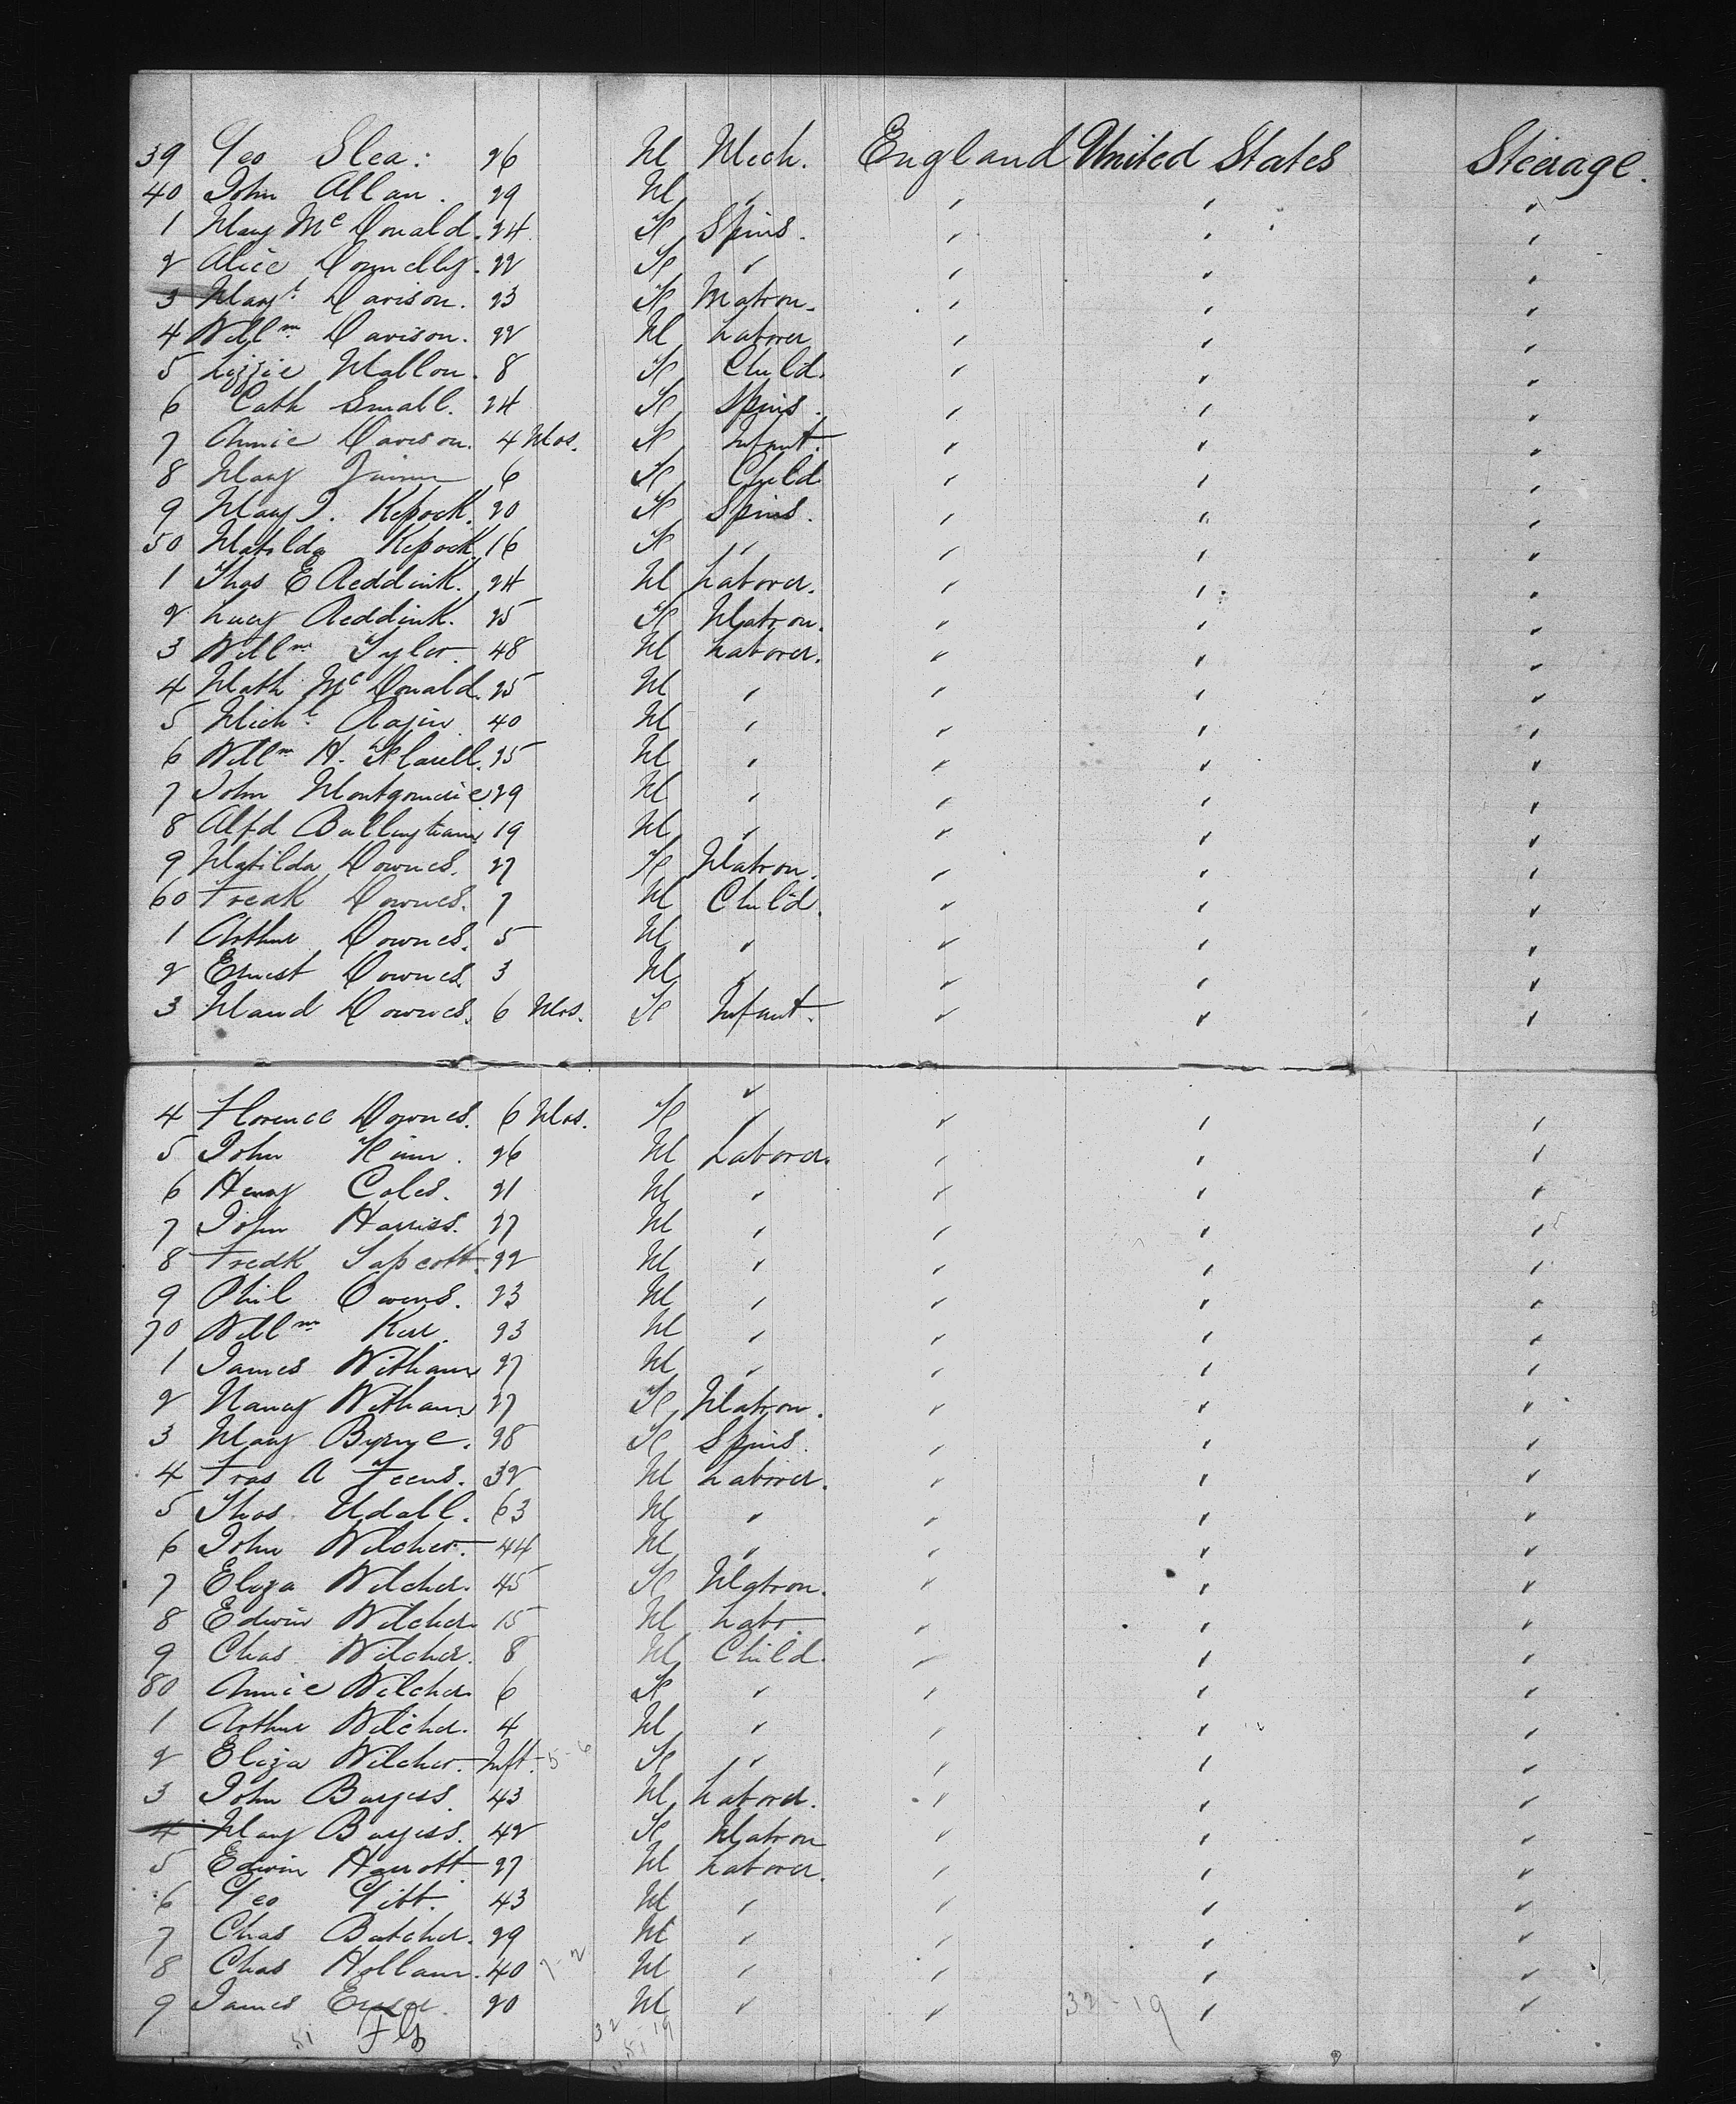 39 Geo Slea. 26 M Mech. England United States Steerage.
40 John Allan. 29 M " " " "
1 Mary McDonald. 24 F Spins. " " "
2 Alice Donnelly. 22 F " " " "
3 Margt. Davison. 23 F Matron. " " "
4 Willm Davison. 22 M Laborer " " "
5 Lizzie Mallon. 8 F Child. " " "
6 Cath Small. 24 F Spins. " " "
7 Annie Davison. 4 Mos. F Infant. " " "
8 Mary 6 F Child " " "
9 Mary J. Kepock. 20 F Spins. " " "
50 Matilda Kepock 16 F " " " "
1 Thos E Reddink. 24 M Laborer. " " "
2 Lucy Reddink. 25 F Matron. " " "
3 Willm Tyler. 48 M Laborer. " " "
4 Math McDonald. 25 M " " " "
5 Michl 40 M " " " "
6 Willm H. 25 M " " " "
7 John Montgomerie. 29 M " " " "
8 Alfd 19 M " " " "
9 Matilda Downes. 27 F Matron. " " "
60 Fredk Downes. 7 M Child. " " "
1 Arthur Downes. 5 M " " " "
2 Ernest Downes. 3 M " " " "
3 Maud Downes. 6 Mos. F Infant. " " "
4 Florence Downes. 6 Mos. F " " " "
5 John 26 M Laborer. " " "
6 Henry Coles. 21 M " " " "
7 John Harriss. 27 M " " " "
8 Fredk Sapcott. 22 M " " " "
9 Phil Owens. 23 M " " " "
70 Willm Kerr. 23 M " " " "
1 James Witham 27 M " " " "
2 Nancy Witham 27 F Matron. " " "
3 Mary Byrne. 28 F Spins. " " "
4 Fras A Feens. 32 M Laborer. " " "
5 Thos. Udall. 63 M " " " "
6 John Wilcher. 44 M " " " "
7 Eliza Wilcher. 45 F Matron. " " "
8 Edwin Wilcher. 15 M Labr. " " "
9 Chas. Wilcher. 8 M Child. " " "
80 Annie Wilcher. 6 F " " " "
1 Arthur Wilcher. 4 M " " " "
2 Eliza Wilcher. Inft. 5-6 F " " " "
3 John Burgess. 43 M Laborer. " " "
4 Mary Burgess. 42 F Matron " " "
5 Edwin Harrott 27 M Laborer. " " "
6 Geo Gitt. 43 M " " " "
7 Chas Butcher. 29 M " " " "
8 Chas Hollam. 40 7-2 M " " " "
9 James 20 M " " 32-19 " "
51 32 51-19